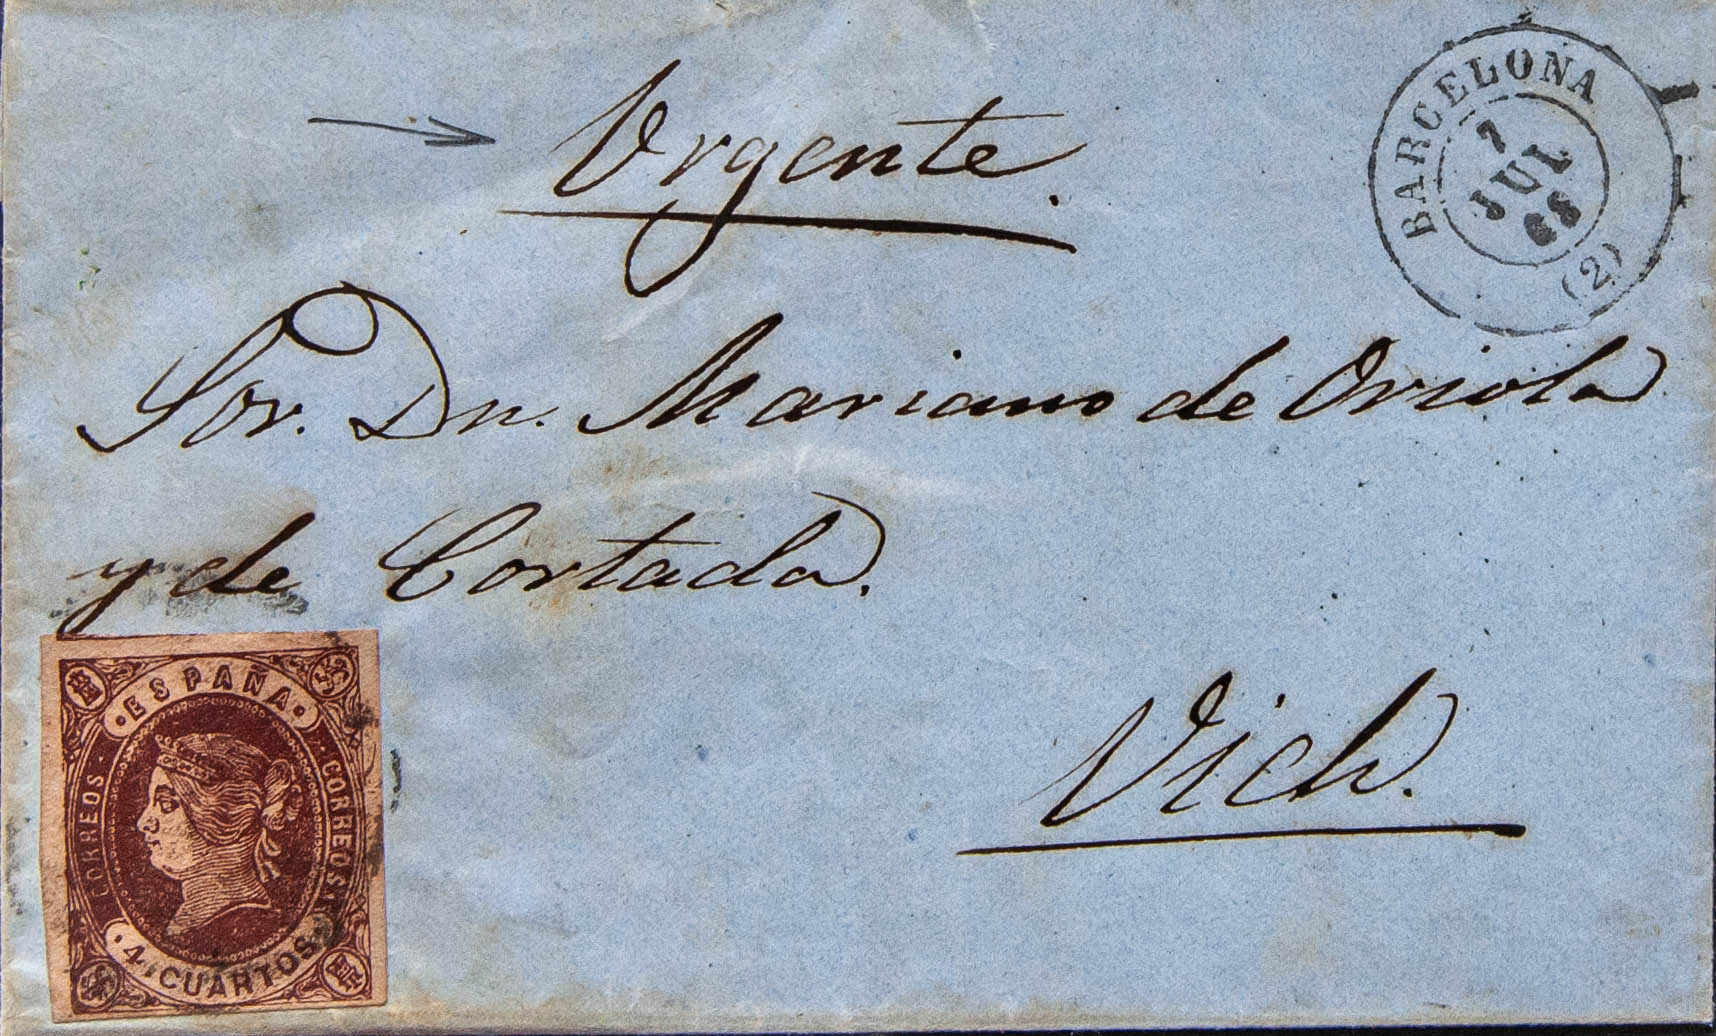 Urgente.
BARCELONA
7
JUL
63
(2)
Sor. Dn. Mariano de Oriola
y de Cortada.
Vich.
ESPAÑA
CORREOS
CORREOS
4 CUARTOS